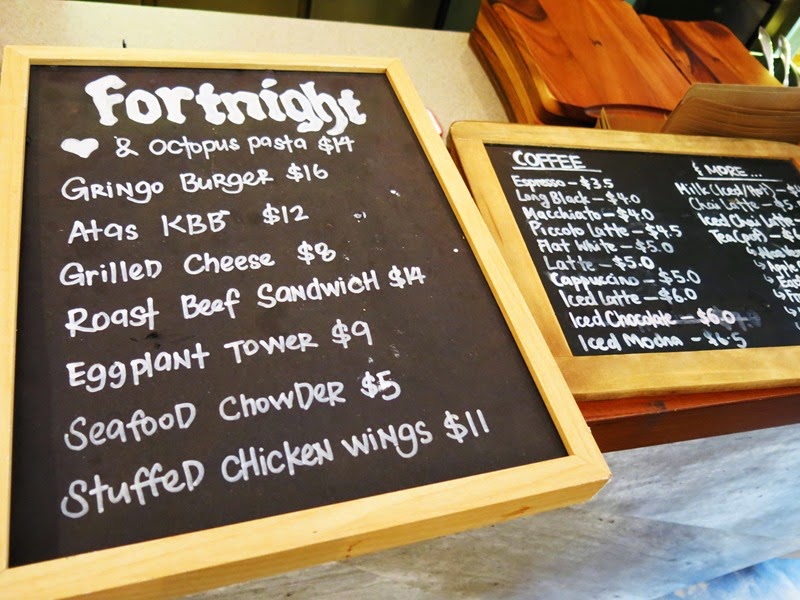 Fortnight
♥ & Octopus pasta $14
Gringo Burger $16
Atas KBB $12
Grilled Cheese $8
Roast Beef Sandwich $14
Eggplant Tower $9
Seafood Chowder $5
Stuffed Chicken wings $11
COFFEE
Espresso – $3.5
Long Black – $4.0
Macchiato – $4.0
Piccolo Latte – $4.5
Flat White – $5.0
Latte – $5.0
Cappuccino – $5.0
Iced Latte – $6.0
Iced Chocolate – $6.0
Iced Mocha – $6.5
& MORE...
Milk (Iced/Hot) –
Chai Latte – $5.
Iced Chai Latte –
Tea (pot) –